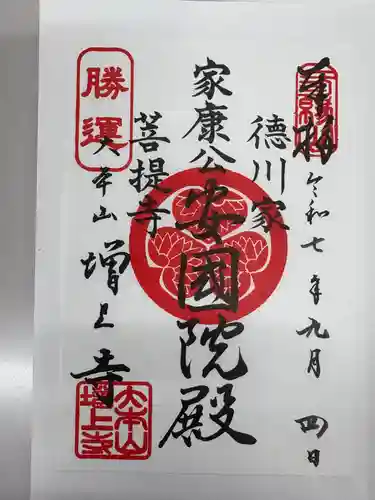 奉拝
令和七年九月四日
徳川家
家康公
安國院殿
菩提寺
勝運
大本山
増上寺
大本山
増上寺